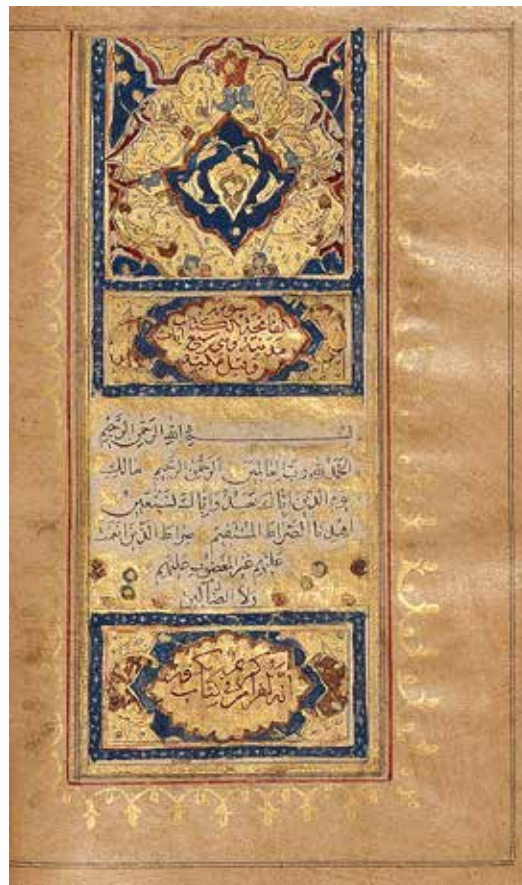 سورة
الفاتحة الكتاب
مدنية وهي سبع آيات
وقيل مكية
بسم الله الرحمن الرحيم
الحمد لله رب العالمين الرحمن الرحيم مالك
يوم الدين اياك نعبد واياك نستعين
اهدنا الصراط المستقيم صراط الذين انعمت
عليهم غير المغضوب عليهم
ولا الضالين
انه لقرآن كريم في كتاب مكنون